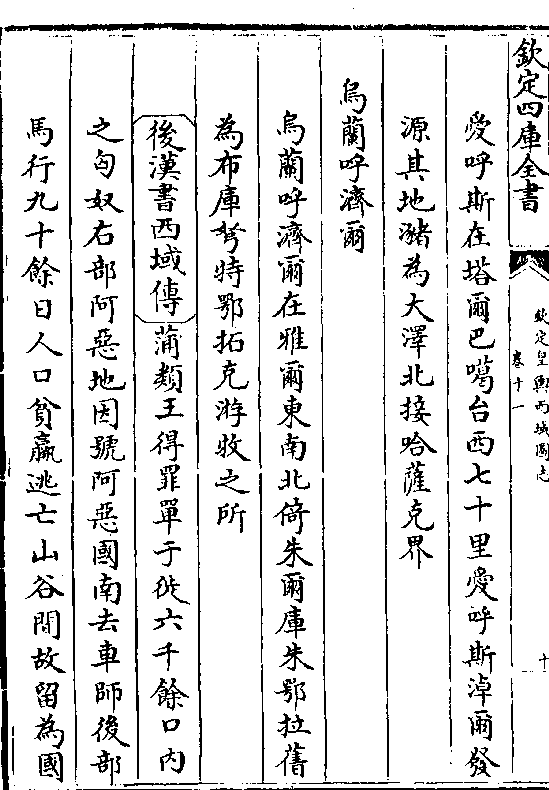 欽定四庫全書
欽定皇輿西域圖志
卷十一
十
愛呼斯在塔爾巴噶台西七十里愛呼斯淖爾發
源其地瀦為大澤北接哈薩克界
烏蘭呼濟爾
烏蘭呼濟爾在雅爾東南北倚朱爾庫朱鄂拉舊
為布庫努特鄂拓克游牧之所
後漢書西域傳蒲類王得罪單于徙六千餘口内
之匈奴右部阿惡地因號阿惡國南去車師後部
馬行九十餘日人口貧羸逃亡山谷間故留為國